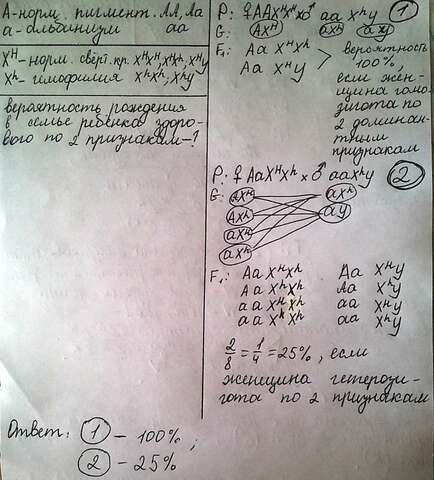 А-норм. пигмент. АА, Аа
а-альбинизм      аа
Xᴴ-норм. сверт. кр. XᴴXᴴ, XᴴXʰ, XᴴУ
Xʰ- гемофилия XʰXʰ, XʰУ
вероятность рождения
в семье ребёнка здоро-
вого по 2 признакам-?
P: ♀ААXᴴXᴴ x ♂ ааXʰУ ①
G: АXᴴ аXʰ аУ
F₁: Аа XᴴXʰ
Аа XᴴУ
> вероятность
100%,
если жен-
щина гомо-
зигота по
2 доминан-
тным
признакам
P: ♀ АаXᴴXʰ x ♂ ааXʰУ ②
G: АXᴴ аXʰ
АXʰ аУ
аXᴴ
аXʰ
F₁: Аа XᴴXʰ Аа XᴴУ
Аа XʰXʰ Аа XʰУ
аа XᴴXʰ аа XᴴУ
аа XʰXʰ аа XʰУ
2/8 = 1/4 = 25%, если
женщина гетерози-
гота по 2 признакам
Ответ: ① – 100%;
② – 25%